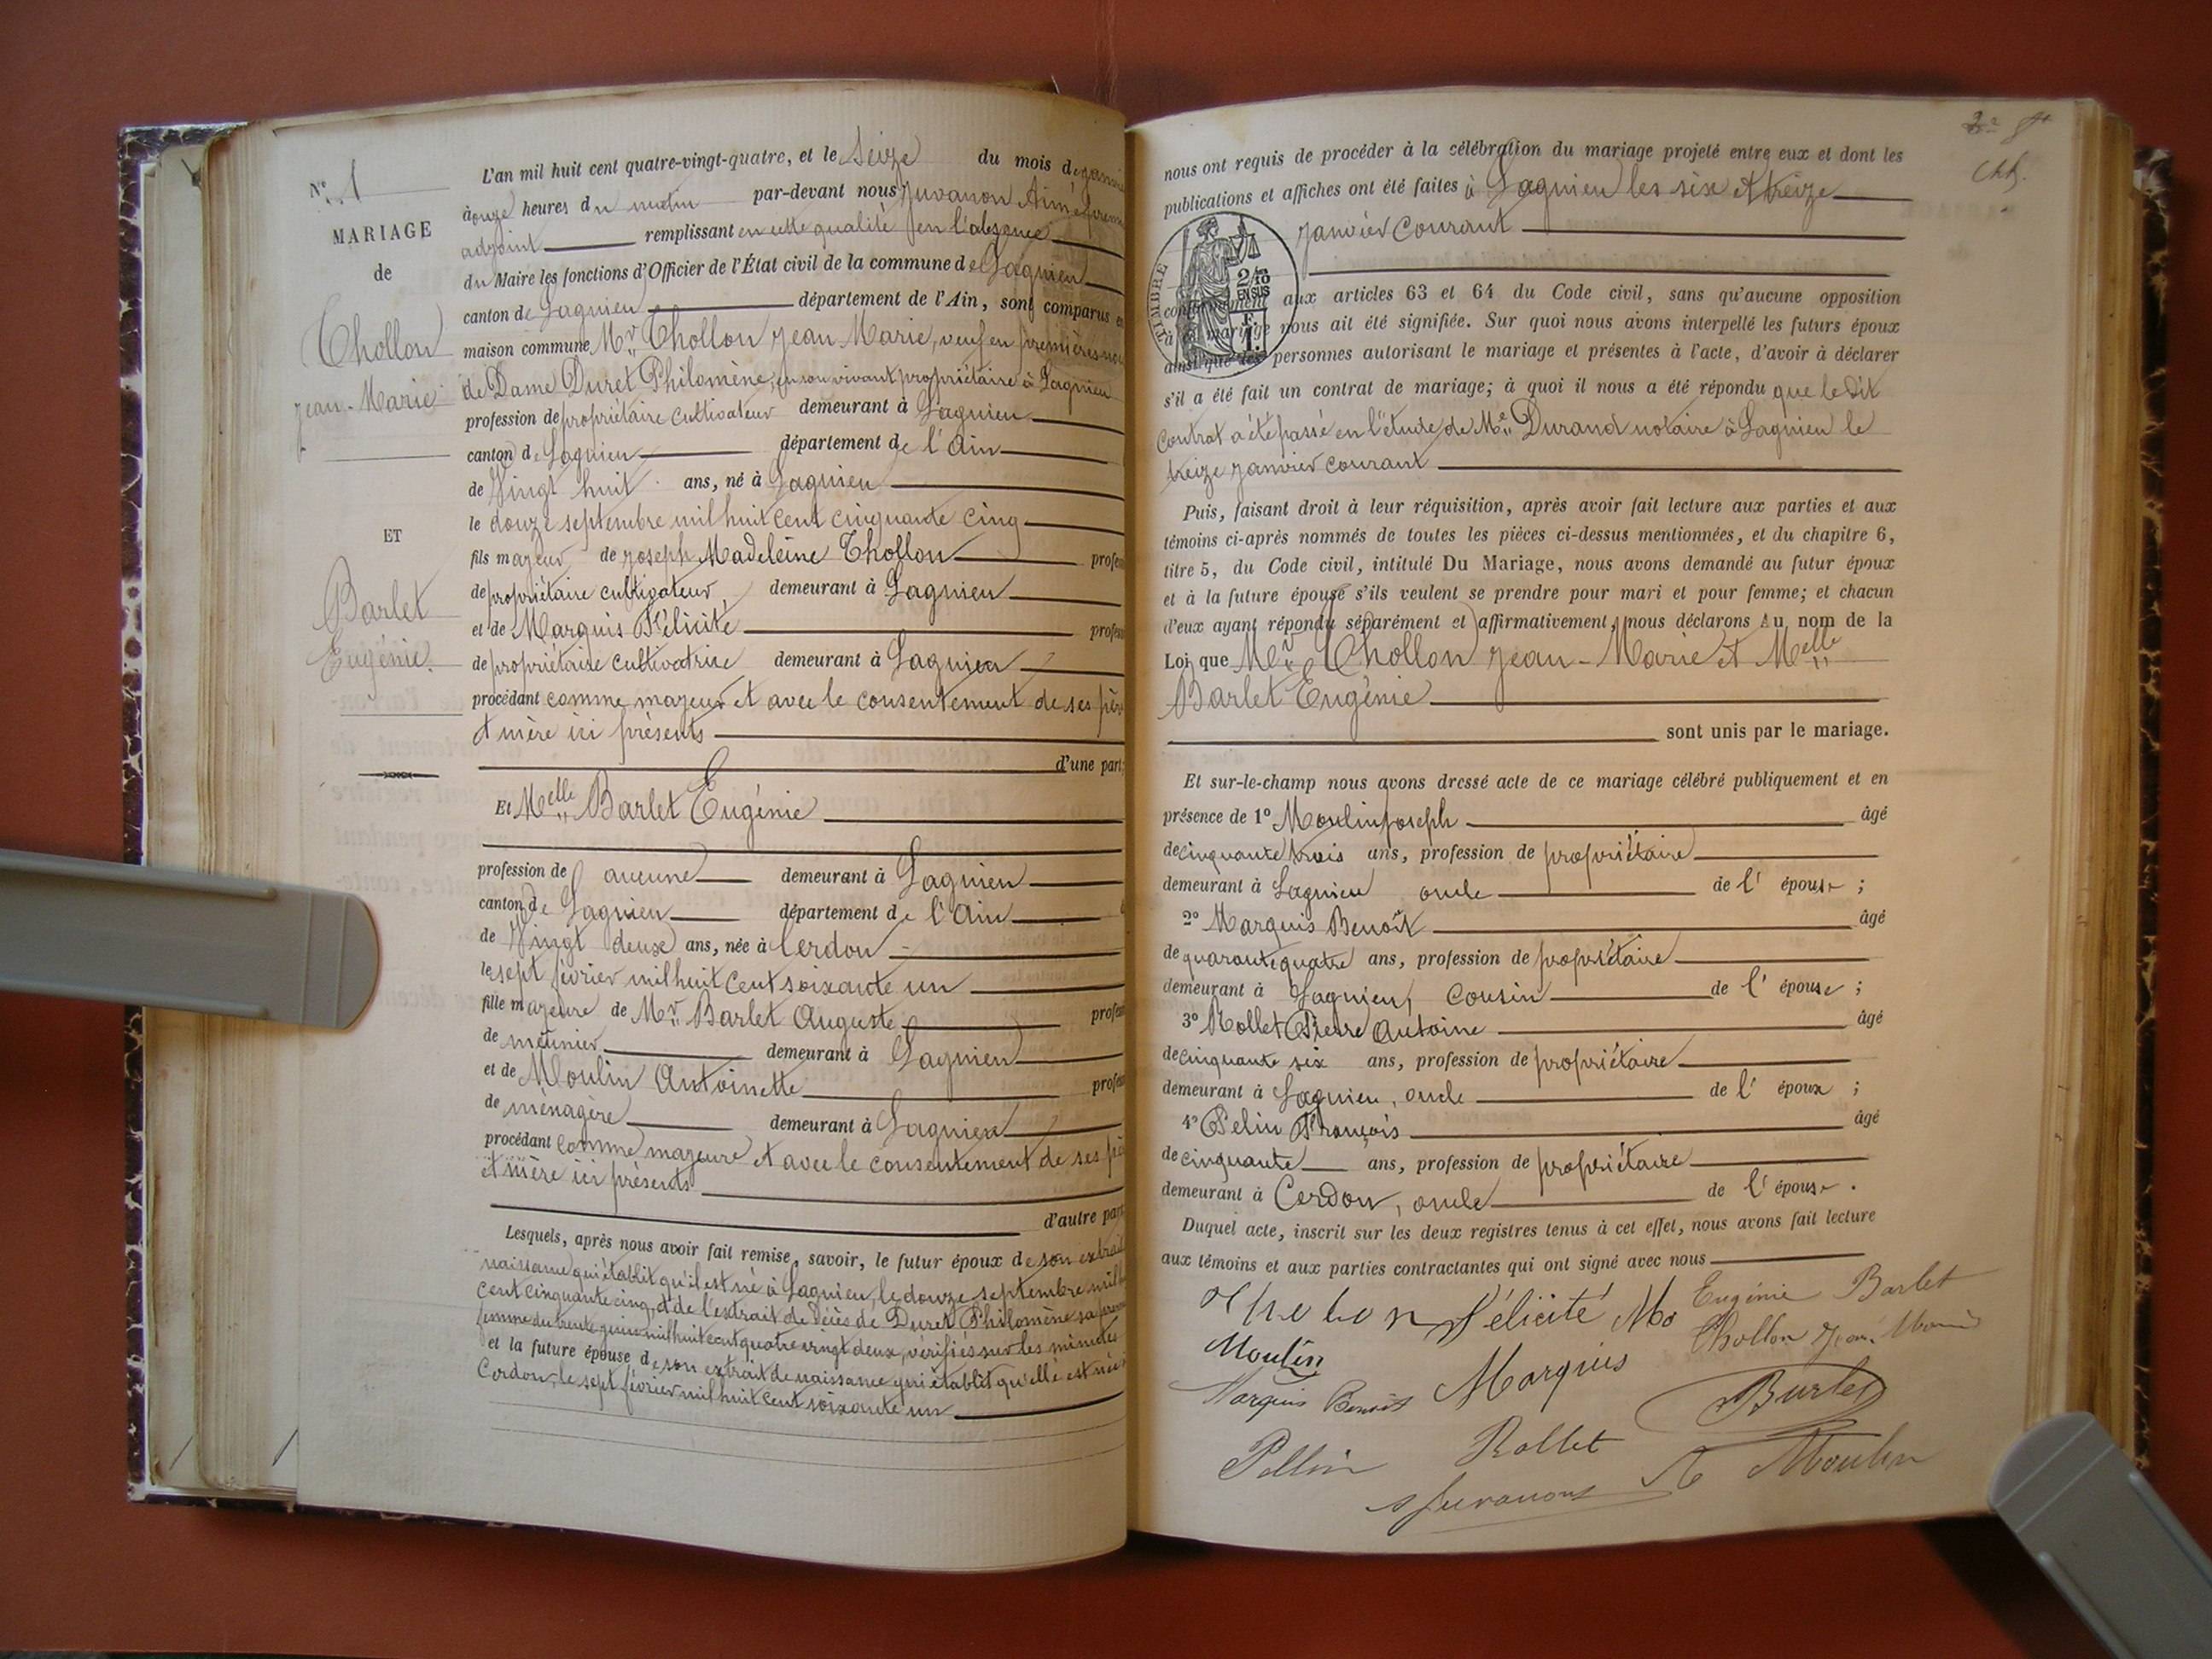 N° 1
MARIAGE
de
Thollon
Jean-Marie
ET
Barlet
Eugénie
L'an mil huit cent quatre-vingt-quatre, et le Seize du mois de janvier
à onze heures du matin par-devant nous Juvanon Aimé premier
adjoint remplissant en cette qualité en l'absence
du Maire les fonctions d'Officier de l'État civil de la commune de Lagnieu
canton de Lagnieu département de l'Ain, sont comparus en
maison commune Mr Thollon Jean Marie, veuf en premières noces
de Dame Duret Philomène, en son vivant propriétaire à Lagnieu
profession de propriétaire cultivateur demeurant à Lagnieu
canton de Lagnieu département de l'Ain
de Vingt huit ans, né à Lagnieu
le douze septembre mil huit cent cinquante cinq
fils majeur de Joseph Madeleine Thollon profession
de propriétaire cultivateur, demeurant à Lagnieu
et de Marquis Félicité profession
de propriétaire cultivatrice demeurant à Lagnieu
procédant comme majeur et avec le consentement de ses père
et mère ici présents
d'une part;
Et Melle Barlet Eugénie
profession de aucune demeurant à Lagnieu
canton de Lagnieu département de l'Ain
de Vingt deux ans, née à Cerdon
le sept février mil huit cent soixante un
fille majeure de Mr Barlet Auguste profession
de meunier demeurant à Lagnieu
et de Moulin Antoinette profession
de ménagère demeurant à Lagnieu
procédant comme majeure et avec le consentement de ses père
et mère ici présents
d'autre part
Lesquels, après nous avoir fait remise, savoir, le futur époux de son extrait
naissance qui établit qu'il est né à Lagnieu, le douze septembre mil
cent cinquante cinq, et de l'extrait de décès de Duret Philomène sa
femme du mil huit cent quatre vingt deux, vérifiés sur les minutes
et la future épouse de son extrait de naissance qui établit qu'elle est née
Cerdon, le sept février mil huit cent soixante un
Ch.
nous ont requis de procéder à la célébration du mariage projeté entre eux et dont les
publications et affiches ont été faites à Lagnieu les six et treize
janvier courant
TIMBRE
2/10
EN SUS
F.
1.
conformément aux articles 63 et 64 du Code civil, sans qu'aucune opposition
à ce mariage nous ait été signifiée. Sur quoi nous avons interpellé les futurs époux
ainsi que les personnes autorisant le mariage et présentes à l'acte, d'avoir à déclarer
s'il a été fait un contrat de mariage; à quoi il nous a été répondu que le dit
Contrat a été passé en l'étude de Me Durand notaire à Lagnieu le
treize janvier courant
Puis, faisant droit à leur réquisition, après avoir fait lecture aux parties et aux
témoins ci-après nommés de toutes les pièces ci-dessus mentionnées, et du chapitre 6,
titre 5, du Code civil, intitulé Du Mariage, nous avons demandé au futur époux
et à la future épouse s'ils veulent se prendre pour mari et pour femme; et chacun
d'eux ayant répondu séparément et affirmativement, nous déclarons Au nom de la
Loi que Mr Thollon Jean-Marie et Melle
Barlet Eugénie
sont unis par le mariage.
Et sur-le-champ nous avons dressé acte de ce mariage célébré publiquement et en
présence de 1° Moulin Joseph âgé
de cinquante trois ans, profession de propriétaire
demeurant à Lagnieu oncle de l'épouse;
2° Marquis Benoît âgé
de quarante quatre ans, profession de propriétaire
demeurant à Lagnieu, Cousin de l'épouse;
3° Rollet Pierre Antoine âgé
de cinquante six ans, profession de propriétaire
demeurant à Lagnieu, oncle de l'époux;
4° Pelin François âgé
de cinquante ans, profession de propriétaire
demeurant à Cerdon, oncle de l'épouse.
Duquel acte, inscrit sur les deux registres tenus à cet effet, nous avons fait lecture
aux témoins et aux parties contractantes qui ont signé avec nous
Félicité Mo Eugénie Barlet
Moulin Thollon Jean Marie
Marquis Benoit Marquis Barlet
Pellin Rollet A Moulin
Juvanon